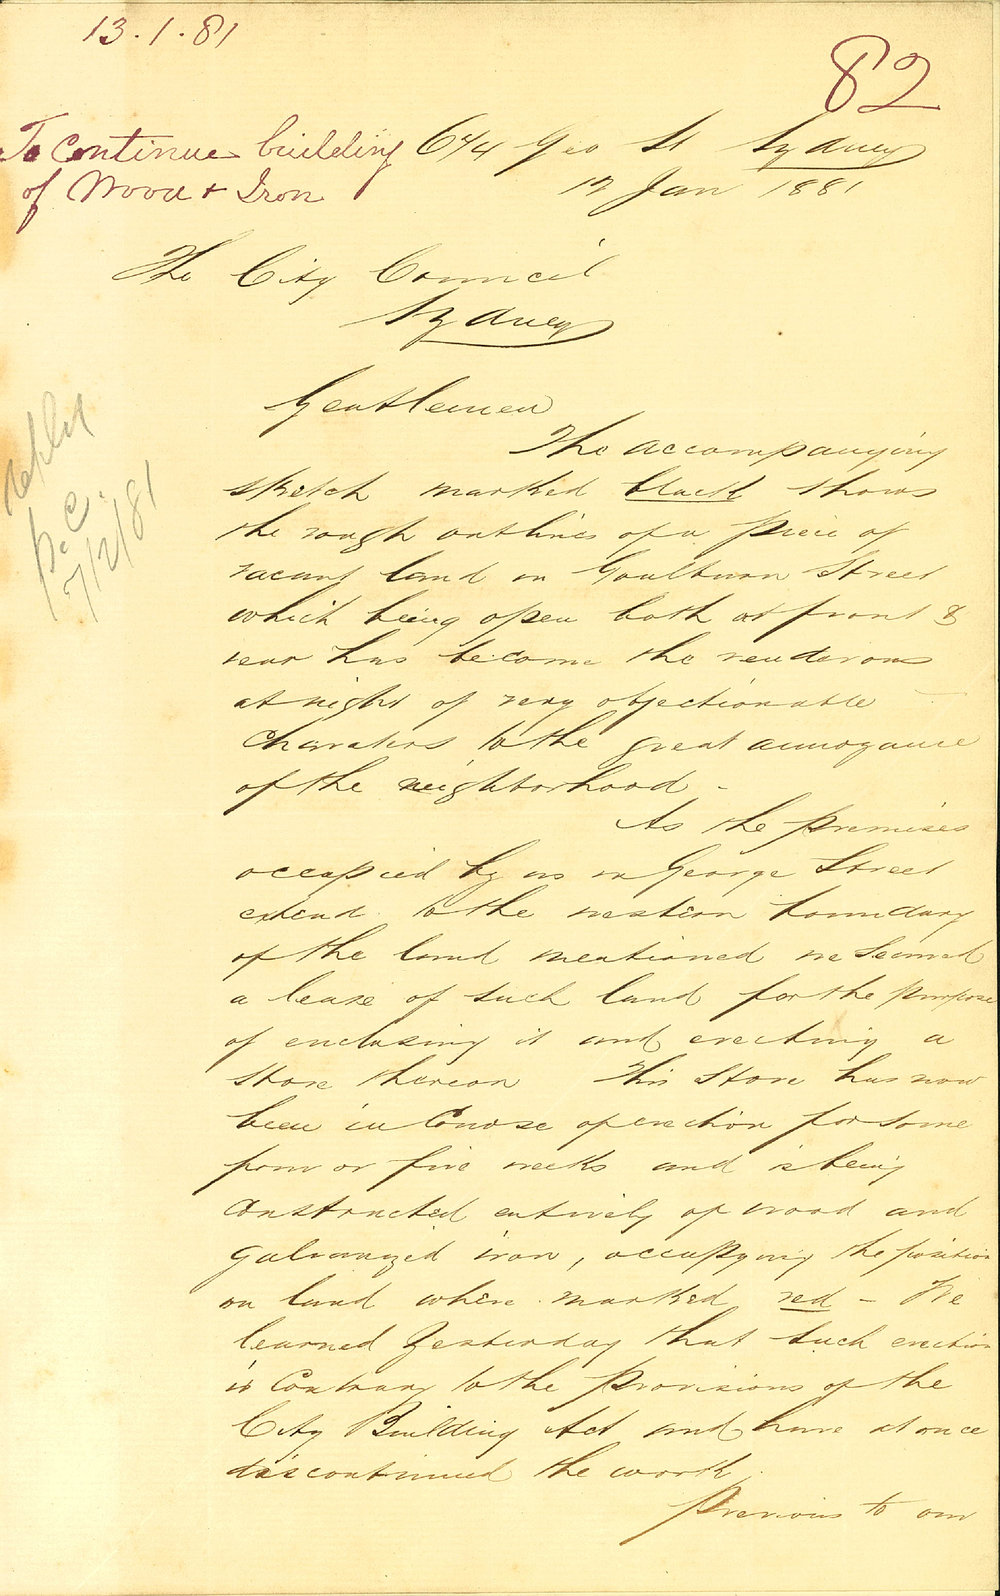 13.1.81
82
To Continue building
of Wood & Iron
674 Geo St Sydney
12 Jan 1881
The City Council
Sydney
Gentlemen
The accompanying
sketch marked black shows
the rough outlines of a piece of
vacant land in Goulburn Street
which being open both at front &
rear has become the rendevous
at night of very objectionable
Charaters to the great annoyance
of the neighborhood -
As the premises
occupied by us in George Street
extend to the western boundary
of the land mentioned we secured
a lease of such land for the purpose
of enclosing it and erecting a
store thereon This Store has now
been in Course of erection for some
four or five weeks and is being
Constructed entirely of wood and
galvanized iron, occupying the position
on land where marked red - We
learned Yesterday that such erection
is Contrary to the provisions of the
City Building Act and have at once
discontinued the work.
Previous to our
p.c.
7/2/81